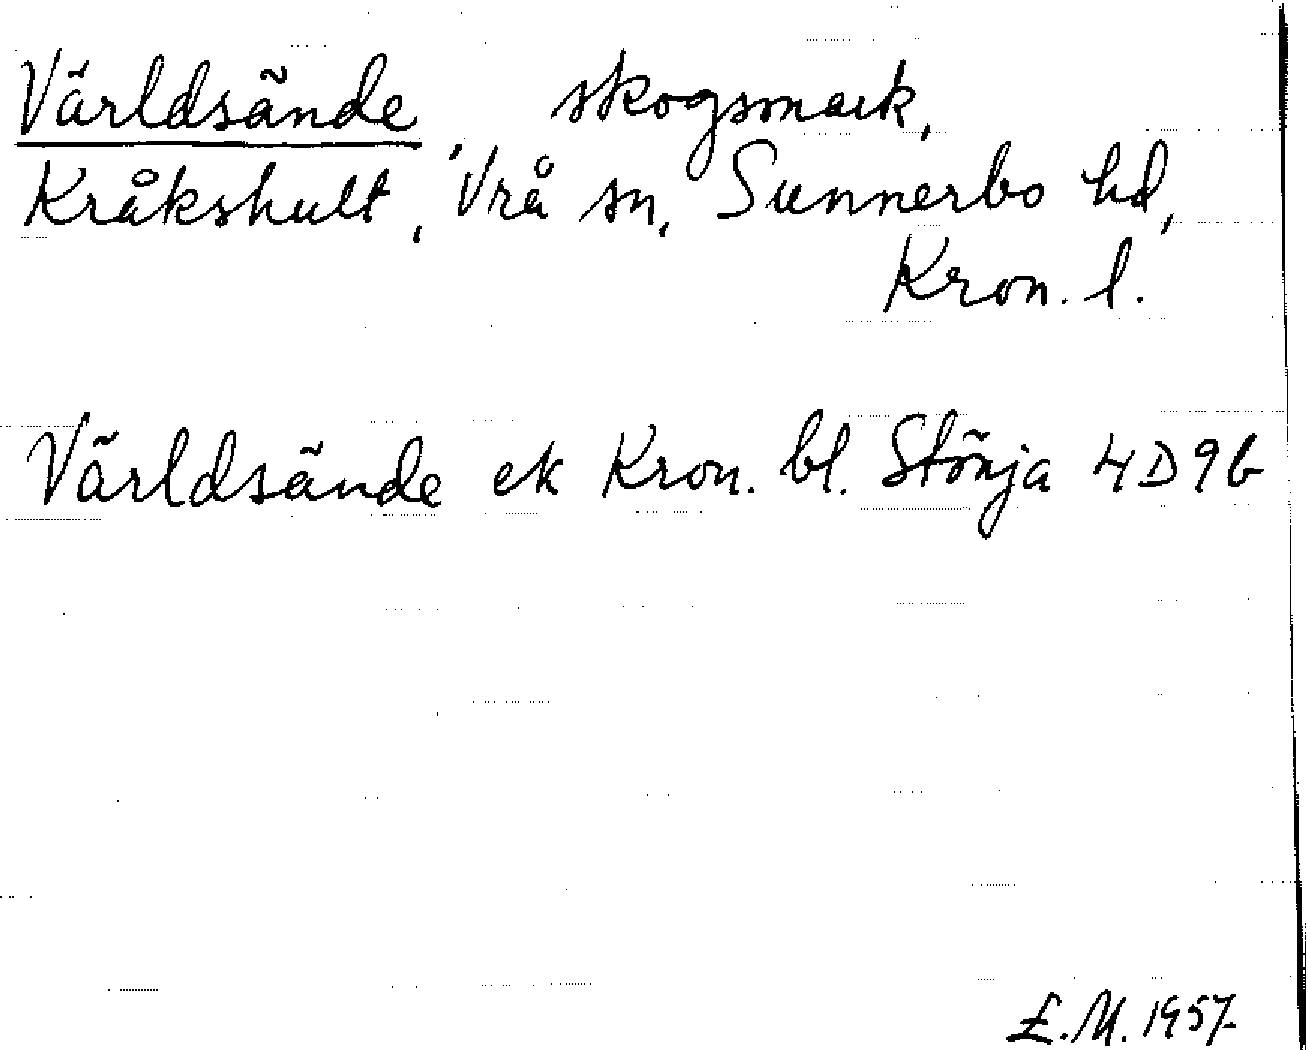 Världsände, skogsmark,
Kråkshult, Vrå sn, Sunnerbo hd,
Kron. l.
Världsände ek Kron. bl. Stönja 4D9b
E.M. 1957